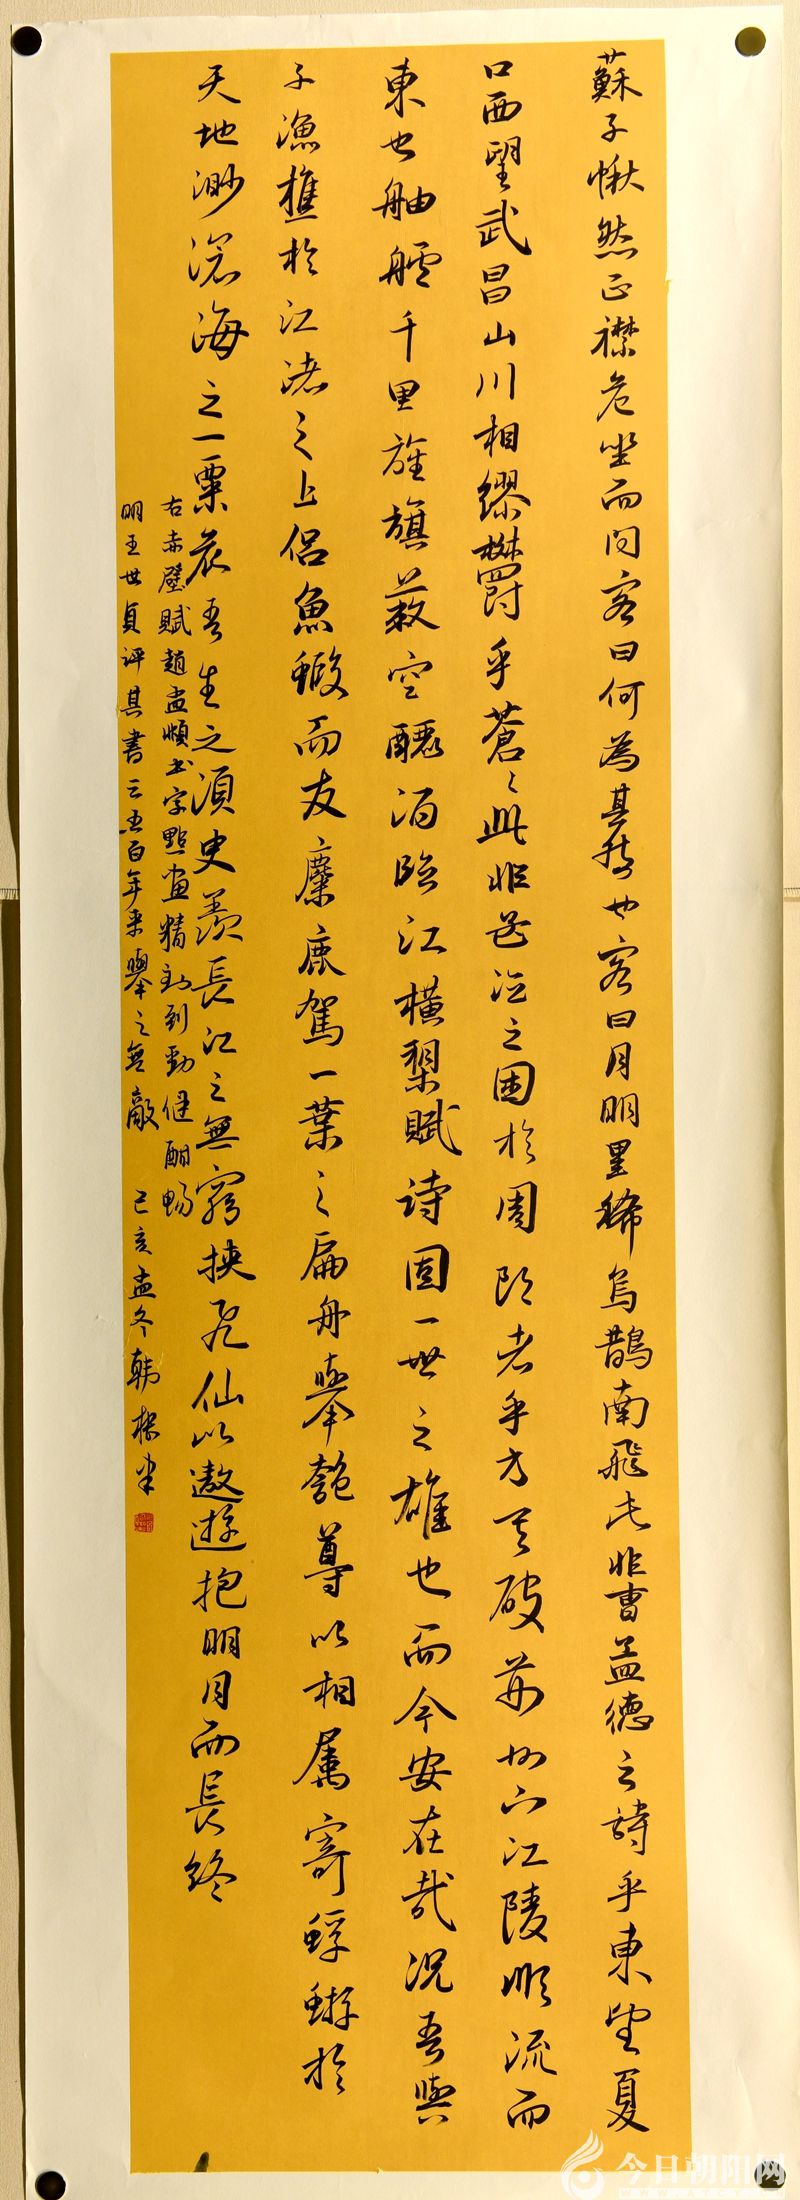 蘇子愀然正襟危坐而問客曰何為其然也客曰月明星稀烏鵲南飛此非曹孟德之詩乎東望夏
口西望武昌山川相繆欝乎蒼〻此非孟德之困於周郎者乎方其破荊州下江陵順流而
東也舳艫千里旌旗蔽空釃酒臨江橫槊賦詩固一世之雄也而今安在哉况吾與
子漁樵於江渚之上侶魚蝦而友麋鹿駕一葉之扁舟舉匏尊以相屬寄蜉蝣於
天地渺滄海之一粟哀吾生之須臾羨長江之無窮挾飛仙以遨遊抱明月而長終
右赤壁賦趙孟頫書字點畫精到勁健酣暢
明王世貞評其書云五百年來舉之無敵 己亥孟冬韩
今日朝阳网